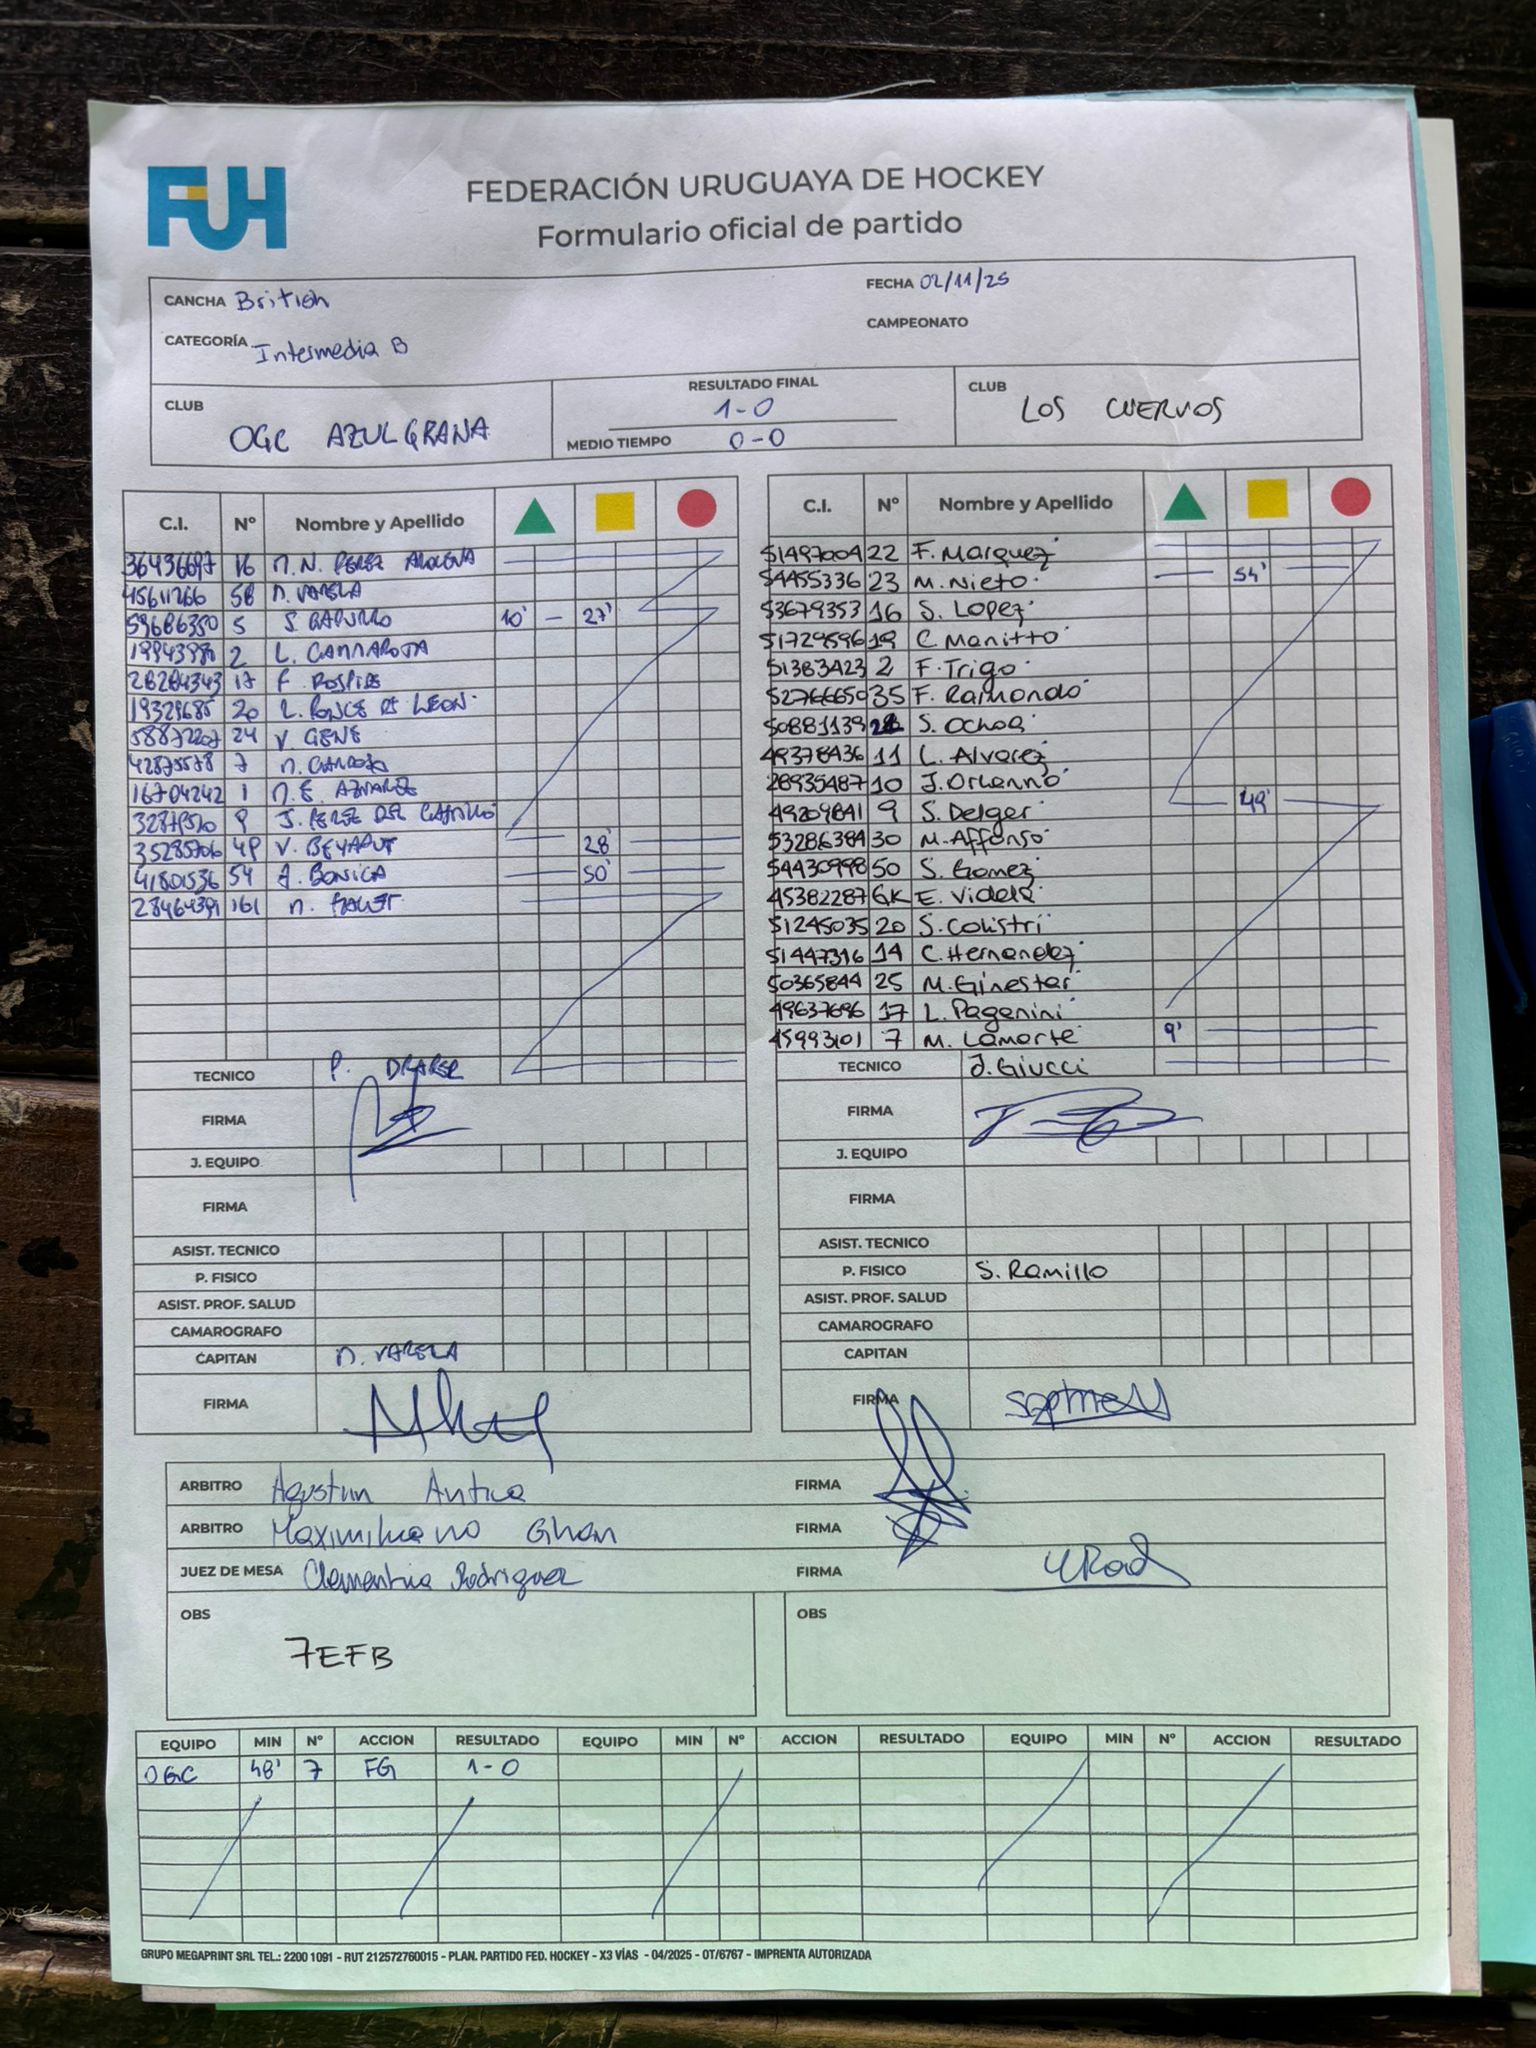 FUH
FEDERACIÓN URUGUAYA DE HOCKEY
Formulario oficial de partido
CANCHA British
FECHA 02/11/25
CATEGORÍA Intermedia B
CAMPEONATO
CLUB OGC AZULGRANA
RESULTADO FINAL 1-0
MEDIO TIEMPO 0-0
CLUB LOS CUERVOS
C.I. Nº Nombre y Apellido
16 M. N. PEREZ
45611266 58 M. VARELA
59686350 5 10' - 27'
2 L.
28284343 17 F.
19329685 20 L. PONCE DE LEON
58872207 24 V. GENE
42875578 7 M.
16704242 1 M. E.
9 J. PEREZ DEL CASTILLO
35285706 V. 28'
41801536 54 A. BONICA 50'
161 M.
C.I. Nº Nombre y Apellido
51497004 22 F. Marquez
54455336 23 M. Nieto 54'
53679353 16 S. Lopez
51729596 19 C. Manitto
51383423 2 F. Trigo
52766650 35 F. Raimondo
50881139 S. Ochoa
49378436 11 L. Alvarez
28935487 10 J.
49209841 9 S. Delger 49'
53286384 30 M. Affonso
54430998 50 S. Gomez
45382287 GK E. Videla
51245035 20 S. Colistri
51447316 14 C. Hernandez
50365844 25 M. Ginestar
49637696 17 L. Paganini
45993101 7 M. Lamorte 9'
TECNICO P.
FIRMA
J. EQUIPO
FIRMA
ASIST. TECNICO
P. FISICO
ASIST. PROF. SALUD
CAMAROGRAFO
CAPITAN M. VARELA
FIRMA
TECNICO J. Giucci
FIRMA
J. EQUIPO
FIRMA
ASIST. TECNICO
P. FISICO S. Ramillo
ASIST. PROF. SALUD
CAMAROGRAFO
CAPITAN
FIRMA
ARBITRO Agustin Antica FIRMA
ARBITRO Maximiliano Ghan FIRMA
JUEZ DE MESA Clementina Rodriguez FIRMA
OBS
7EFB
OBS
EQUIPO MIN Nº ACCION RESULTADO EQUIPO MIN Nº ACCION RESULTADO EQUIPO MIN Nº ACCION RESULTADO
OGC 48' 7 FG 1-0
GRUPO MEGAPRINT SRL TEL.: 2200 1091 - RUT 212572760015 - PLAN. PARTIDO FED. HOCKEY - X3 VÍAS - 04/2025 - OT/6767 - IMPRENTA AUTORIZADA